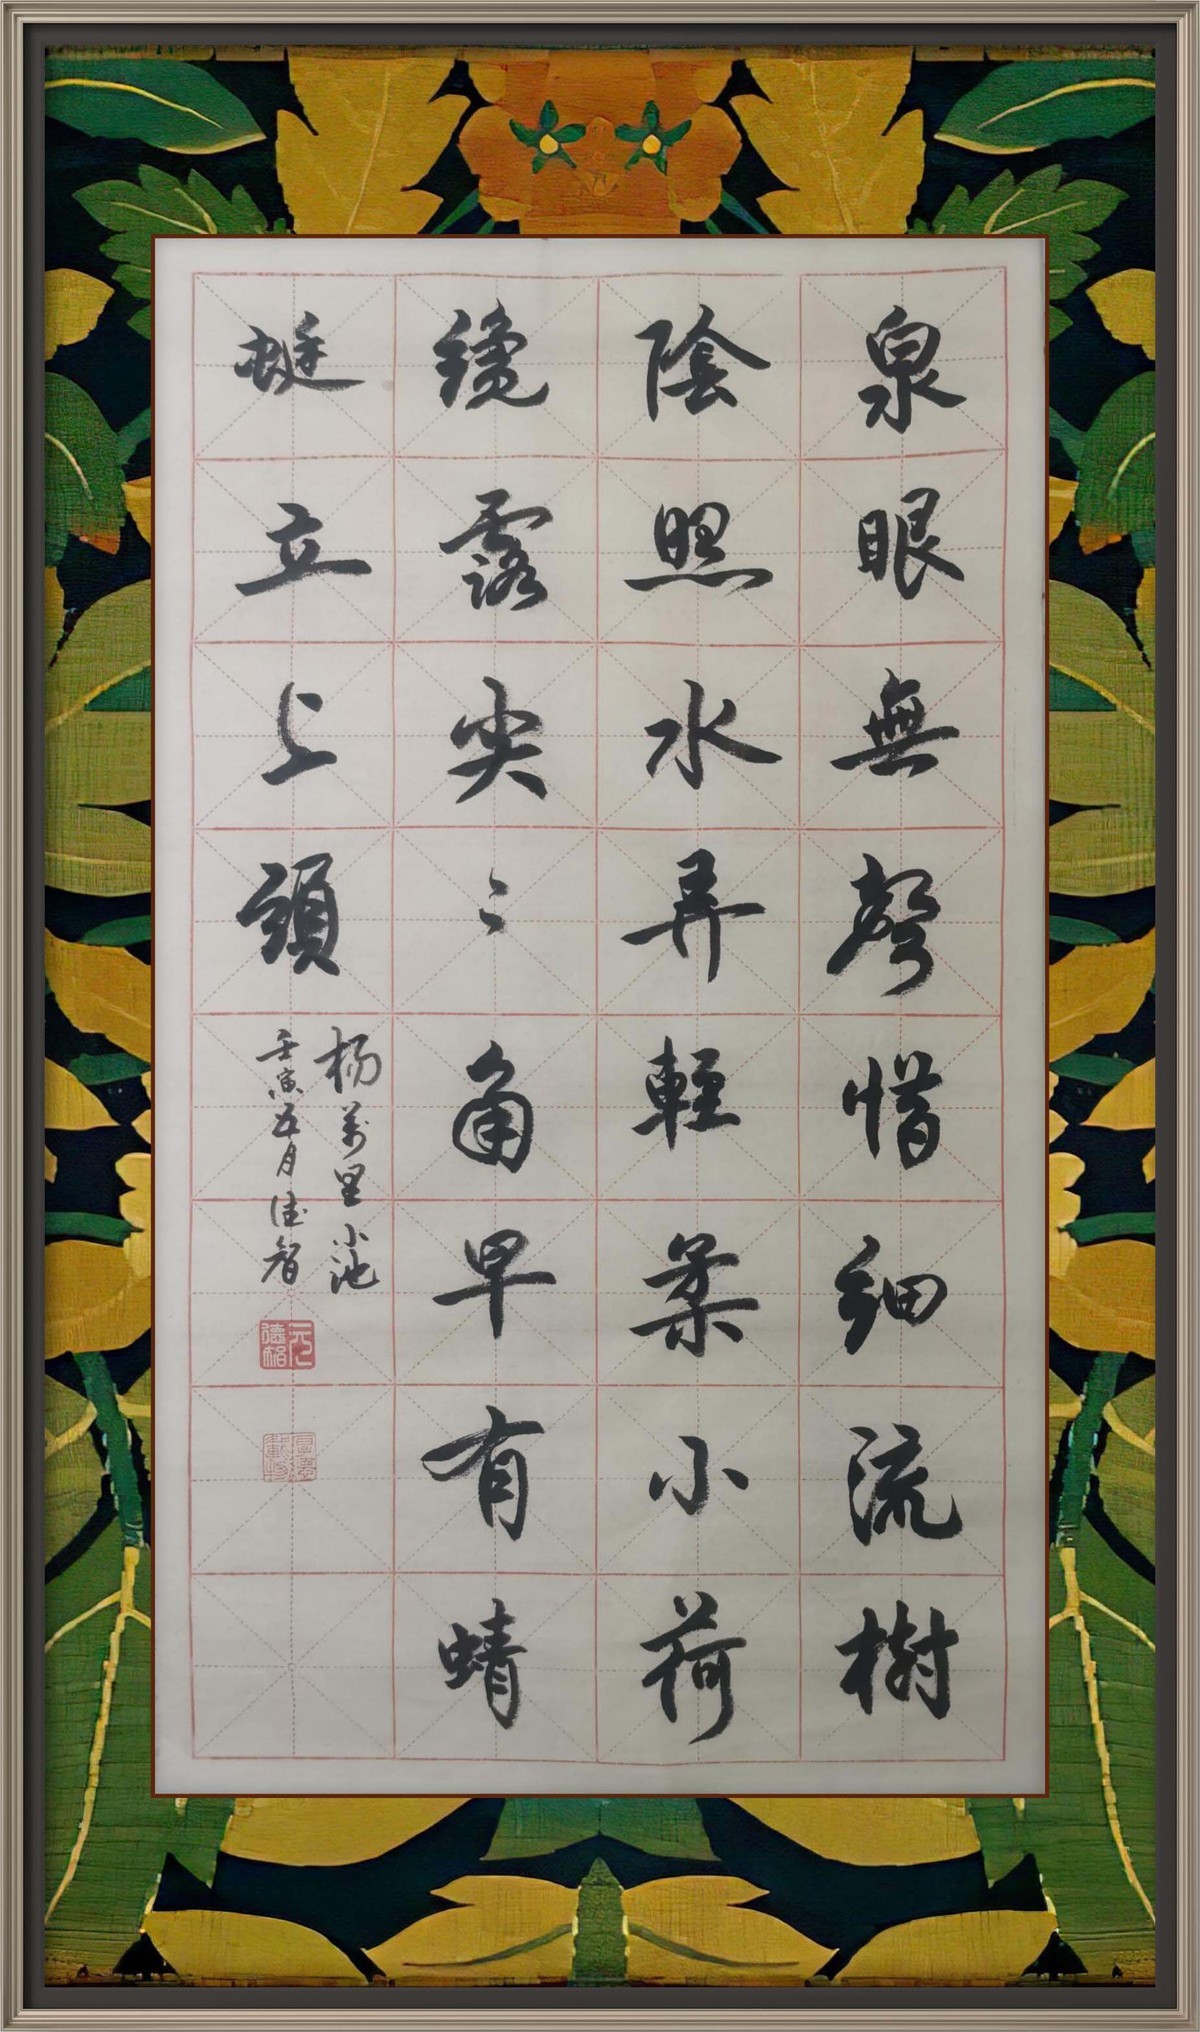 泉眼無聲惜細流樹
陰照水弄輕柔小荷
纔露尖々角早有蜻
蜓立上頭
杨萬里小池
壬寅五月德智